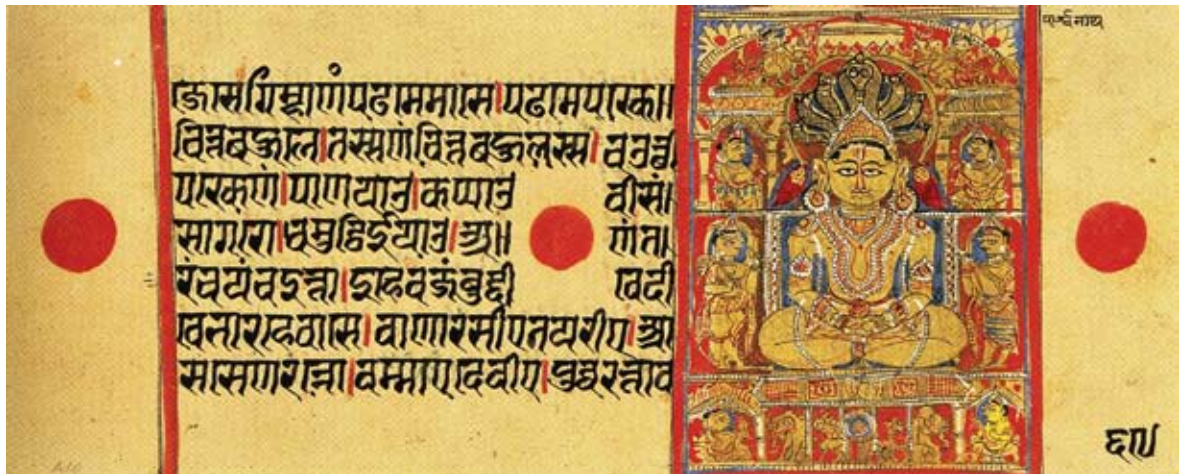 जेसेगिम्हाणंपढमेमासे।पढमेपरके॥
चित्तबहुले।तस्सणंचित्तबहुलस्स।चउत्थी
परकेणं।पाणयाउ।कप्पाउ वीसं।
सागरोवमट्ठिईयाउ।अ॥ णंत।
रंचयंचइत्ता।इहेवजंबुद्दी वेदी
वेभारहेवासे।वाणारसीएनयरीए।आ
ससेणरन्नो।वम्माएदेवीए।पुव्वरत्ताव
पार्श्वनाथ